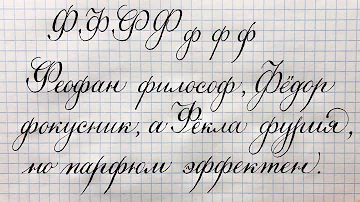 Ф Ф Ф Ф ф ф ф
Феофан философ, Фёдор
фокусник, а Фёкла фурия,
но парфюм эффектен.